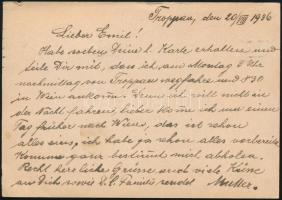 Troppau, den 20/VIII 1936
Lieber Emil!
Habe soeben Deine l. Karte erhalten und
teile Dir mit, dass ich am Montag 2 Uhr
nachmittag von Troppau wegfahre und 830
in Wien ankomme. Denn ich will nicht in
der Nacht fahren, lieber komme ich um einen
Tag früher nach Wien, das ist schon
alles eins, ich habe ja schon alles vorbereitet.
Komme ganz bestimmt mich abholen.
Recht herzliche Grüsse und viele Küsse
an Dich sowie l. Familie sendet Mutter.